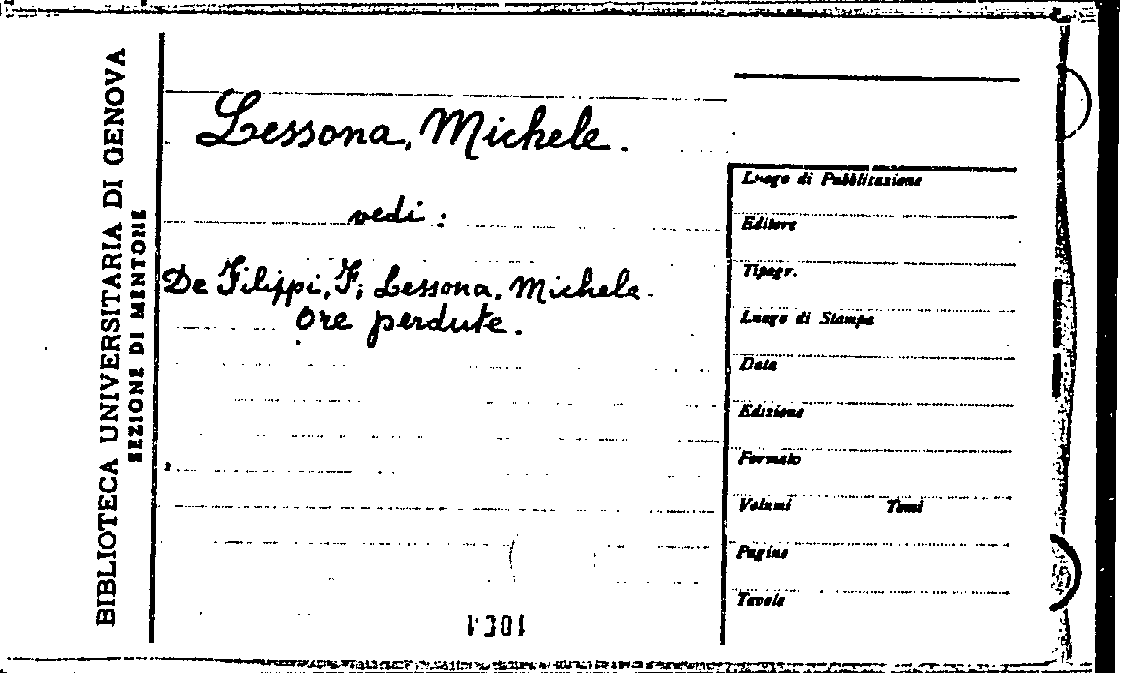 BIBLIOTECA UNIVERSITARIA DI GENOVA
SEZIONE DI MENTONE
Lessona, Michele.
vedi:
De Filippi, F; Lessona, Michele.
Ore perdute.
Luogo di Pubblicazione
Editore
Tipogr.
Luogo di Stampa
Data
Edizione
Formato
Volumi Tomi
Pagine
Tavole